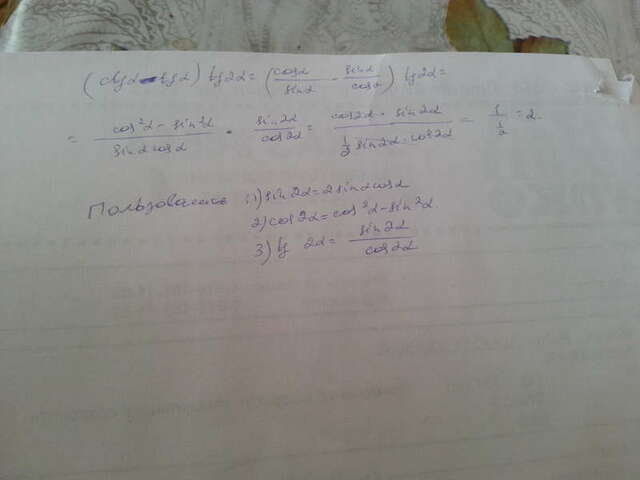 (ctgα - tgα) tg2α = (cosα/sinα - sinα/cosα) tg2α =
= cos²α - sin²α/sinα cosα · sin2α/cos2α = cos2α · sin2α/½ sin2α · cos2α = 1/½ = 2.
Пользовались 1) sin2α = 2sinα cosα
2) cos2α = cos²α - sin²α.
3) tg 2α = sin2α/cos2α